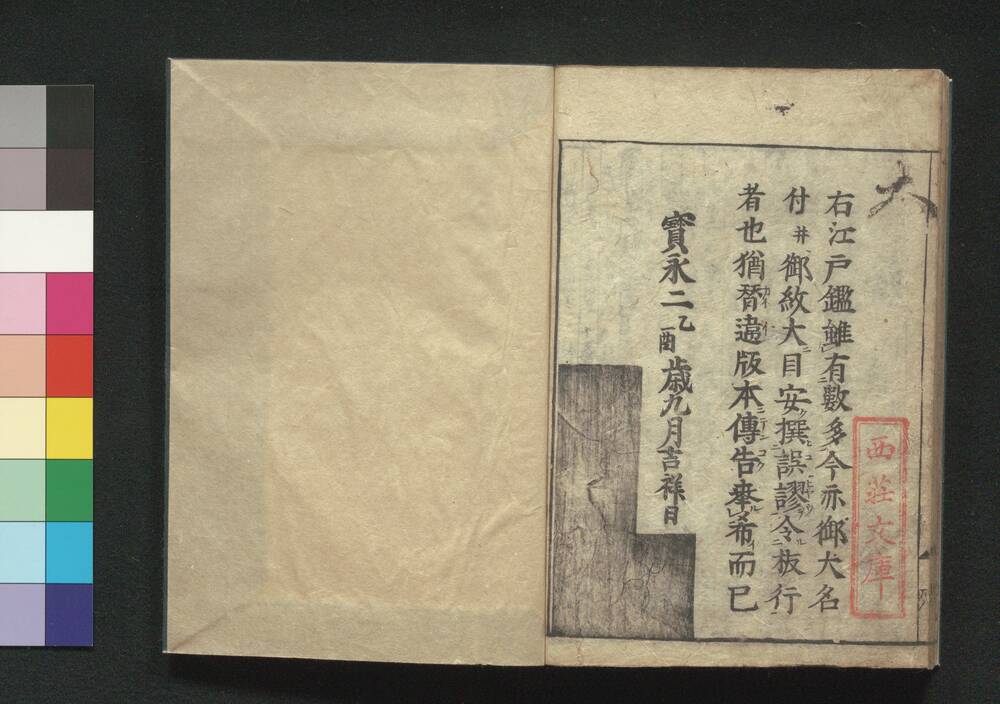 大
西荘文庫
右江戸鑑雖有數多今亦御大名
付并御紋大目安撰誤謬令板行
者也猶替違版本傳告奉希而已
寳永二乙酉歳九月吉祥日